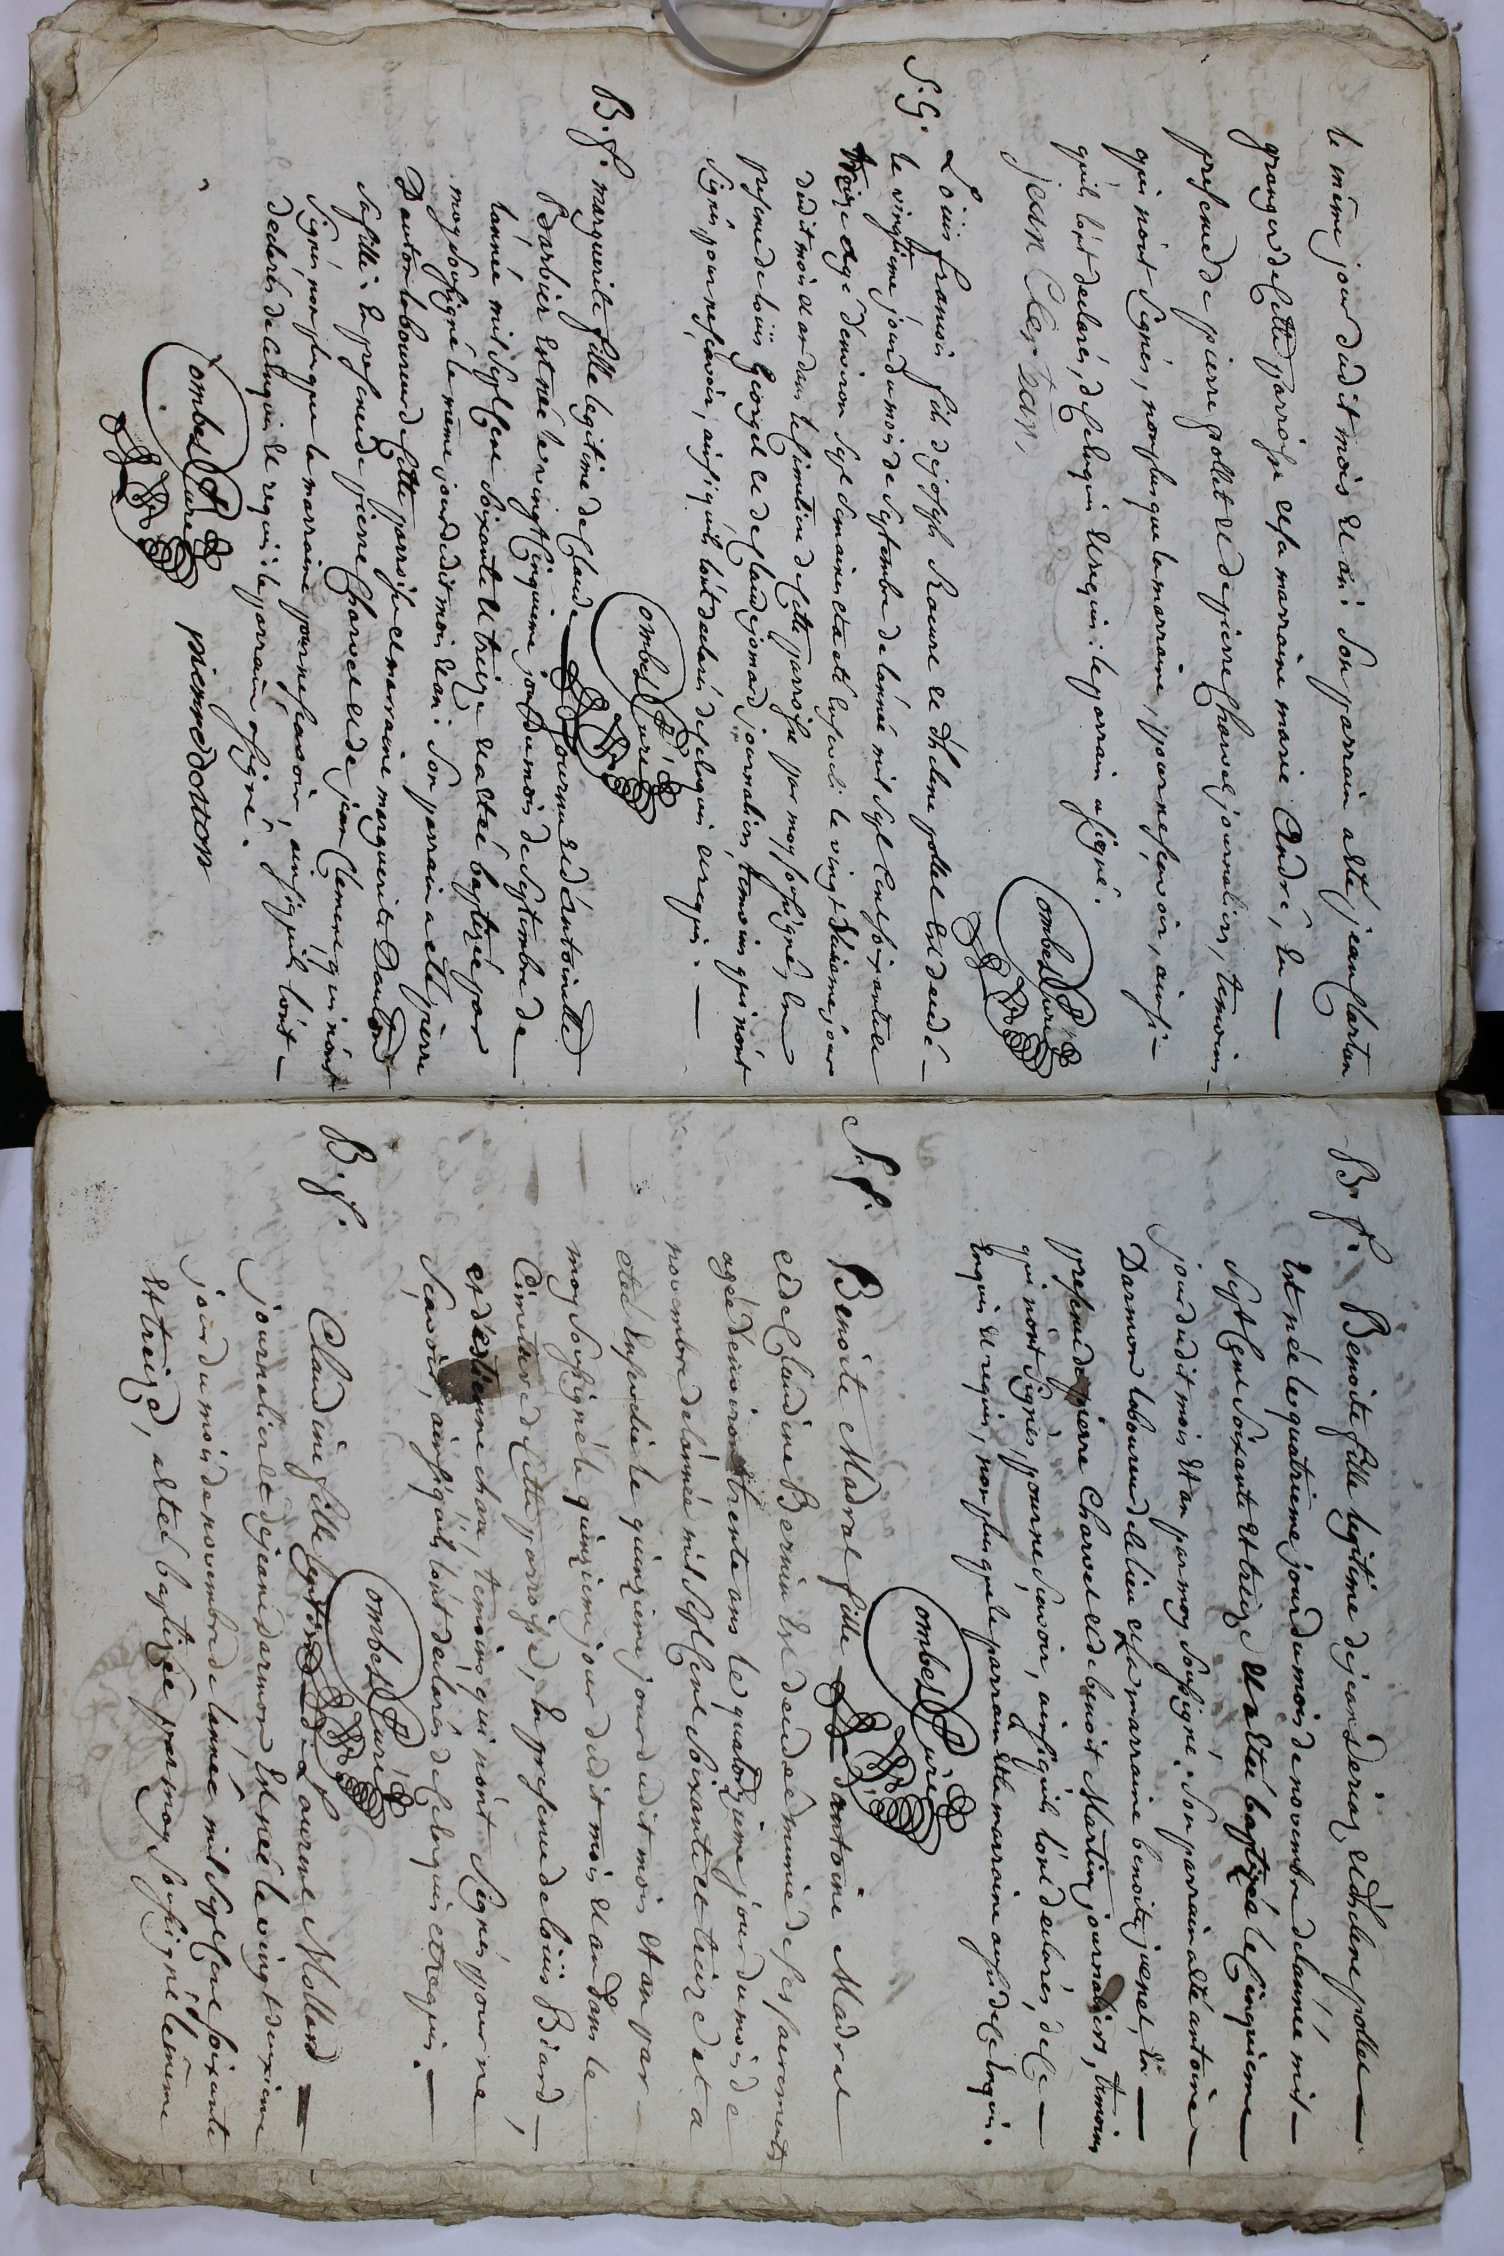 le même jour dudit mois et an : son parrain a été jean Clartan
granger de cette parroisse et sa marraine marie André, En
presence de pierre pollet et de pierre Charvet journaliers, temoins
qui n'ont signés, non plus que la marraine, pour ne sçavoir, ainsi
qu'ils l'ont declarés, de ce enquis et requis : le parrain a signé.
jean Clertan,
Combes Curé
S. G.
Loüis fransois fils de joseph Raeurt et d'helene pollet Est decedé
le vingtieme jour du mois de septembre de l'année mil sept Cent soixante et
treize agé d'environ sept semaines et a eté Enseveli le vingt deuxieme jour
dudit mois et an dans le simetiere de cette parroisse par moy soussigné, En
presence de loüis George et de Claude jomard journaliers, temoins qui n'ont
signés pour ne sçavoir, ainsi qu'ils l'ont declarés de ce enquis et requis.
Combes Curé
B. f.
marguerite fille legitime de Claude fournier et d'Antoinette
Barbier Est née le vingt Cinquieme jour du mois de septembre de
l'année mil sept Cent soixante et treize et a eté baptizée par
moy soussigné le même jour dudit mois et an : son parrain a eté pierre
Danton laboureur de cette parroisse et marraine marguerite Danton
sa fille : En presence de pierre Charvet et de jean Clement qui n'ont
signés, non plus que la marraine pour ne sçavoir, ainsi qu'ils l'ont
declarés de ce enquis et requis : le parrain a signé.
Combes Curé pierre dotton
B. f.
Benoite fille legitime de jean Deriaz, et d'helene pollet
Est née le quatrieme jour du mois de novembre de l'année mil
sept Cent soixante et treize et a eteé baptizée le Cinquieme
jour dudit mois et an par moy soussigné : son parrain a eté antoine
Darmon laboureur de ce lieu et la marraine benoite jenet, En
presence de pierre Charvet et de benoit Martin journaliers, temoins
qui n'ont signés, pour ne sçavoir, ainsi qu'ils l'ont declarés, de ce
Enquis et requis, non plus que le parrain et la marraine aussi de ce Enquis.
Combes Curé
S. f.
Benoite Madrat fille d'antoine Madrat
et de Claudine Bernin Est decedée munie de ses sacrements
agée d'environ trente ans le quatorzieme jour du mois de
novembre de l'année mil sept Cent soixante et treize et a
eteé Ensevelie le quinzieme jour dudit mois et an par
moy soussigné le quinzieme jour dudit mois et an dans le
Cimetiere de cette parroisse, En presence de loüis Biard,
et d'estienne chara, temoins qui n'ont signés pour ne
sçavoir, ainsi qu'ils l'ont declarés de ce enquis et requis.
Combes Curé
B. f.
Claudine fille de Laurent Mollard
journalier et de jeane darmon, Est née le vingt deuxieme
jour du mois de novembre de l'année mil sept Cent soixante
Et treize, a eteé baptizée par moy soussigné le même